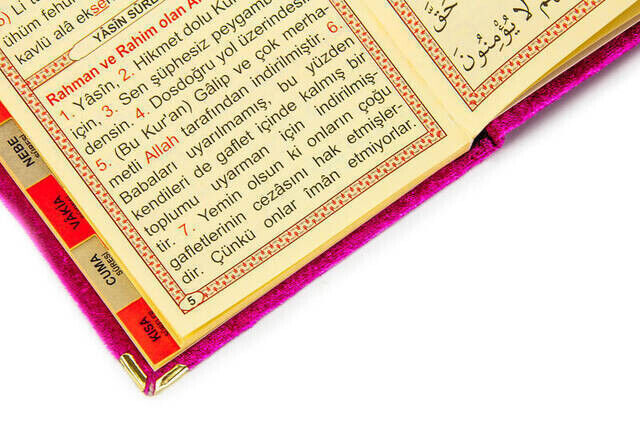 5) Li t
ühüm fehü
kavlü alâ ekser
YÂSÎN SÛR
Rahman ve Rahim olan A
1. Yâsîn. 2. Hikmet dolu Kur
için, 3. Sen şüphesiz peygamb
densin. 4. Dosdoğru yol üzerindesi
5. (Bu Kur'an) Gâlip ve çok merha
metli Allah tarafından indirilmiştir. 6.
Babaları uyarılmamış, bu yüzden
kendileri de gaflet içinde kalmış bir
toplumu uyarman için indirilmiş-
tir. 7. Yemin olsun ki onların çoğu
gafletlerinin cezasını hak etmişler-
dir. Çünkü onlar îmân etmiyorlar.
5
حَقَّ
لَا يُؤْمِنُونَ
NEBE
VÂKIA
CUMA
SÛRESİ
KISA